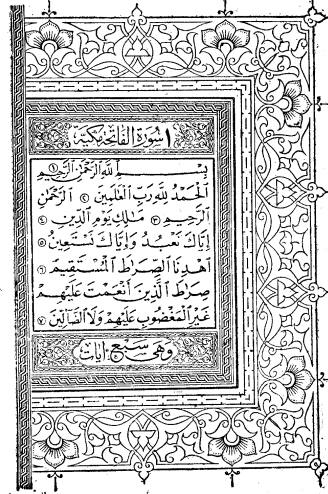 ١ سورة الفاتحة مكية
بِسْمِ اللَّهِ الرَّحْمَٰنِ الرَّحِيمِ ١
الْحَمْدُ لِلَّهِ رَبِّ الْعَٰلَمِينَ ٢ الرَّحْمَٰنِ
الرَّحِيمِ ٣ مَٰلِكِ يَوْمِ الدِّينِ ٤
إِيَّاكَ نَعْبُدُ وَإِيَّاكَ نَسْتَعِينُ ٥
اهْدِنَا الصِّرَٰطَ الْمُسْتَقِيمَ ٦
صِرَٰطَ الَّذِينَ أَنْعَمْتَ عَلَيْهِمْ
غَيْرِ الْمَغْضُوبِ عَلَيْهِمْ وَلَا الضَّالِّينَ ٧
وهي سبع آيات